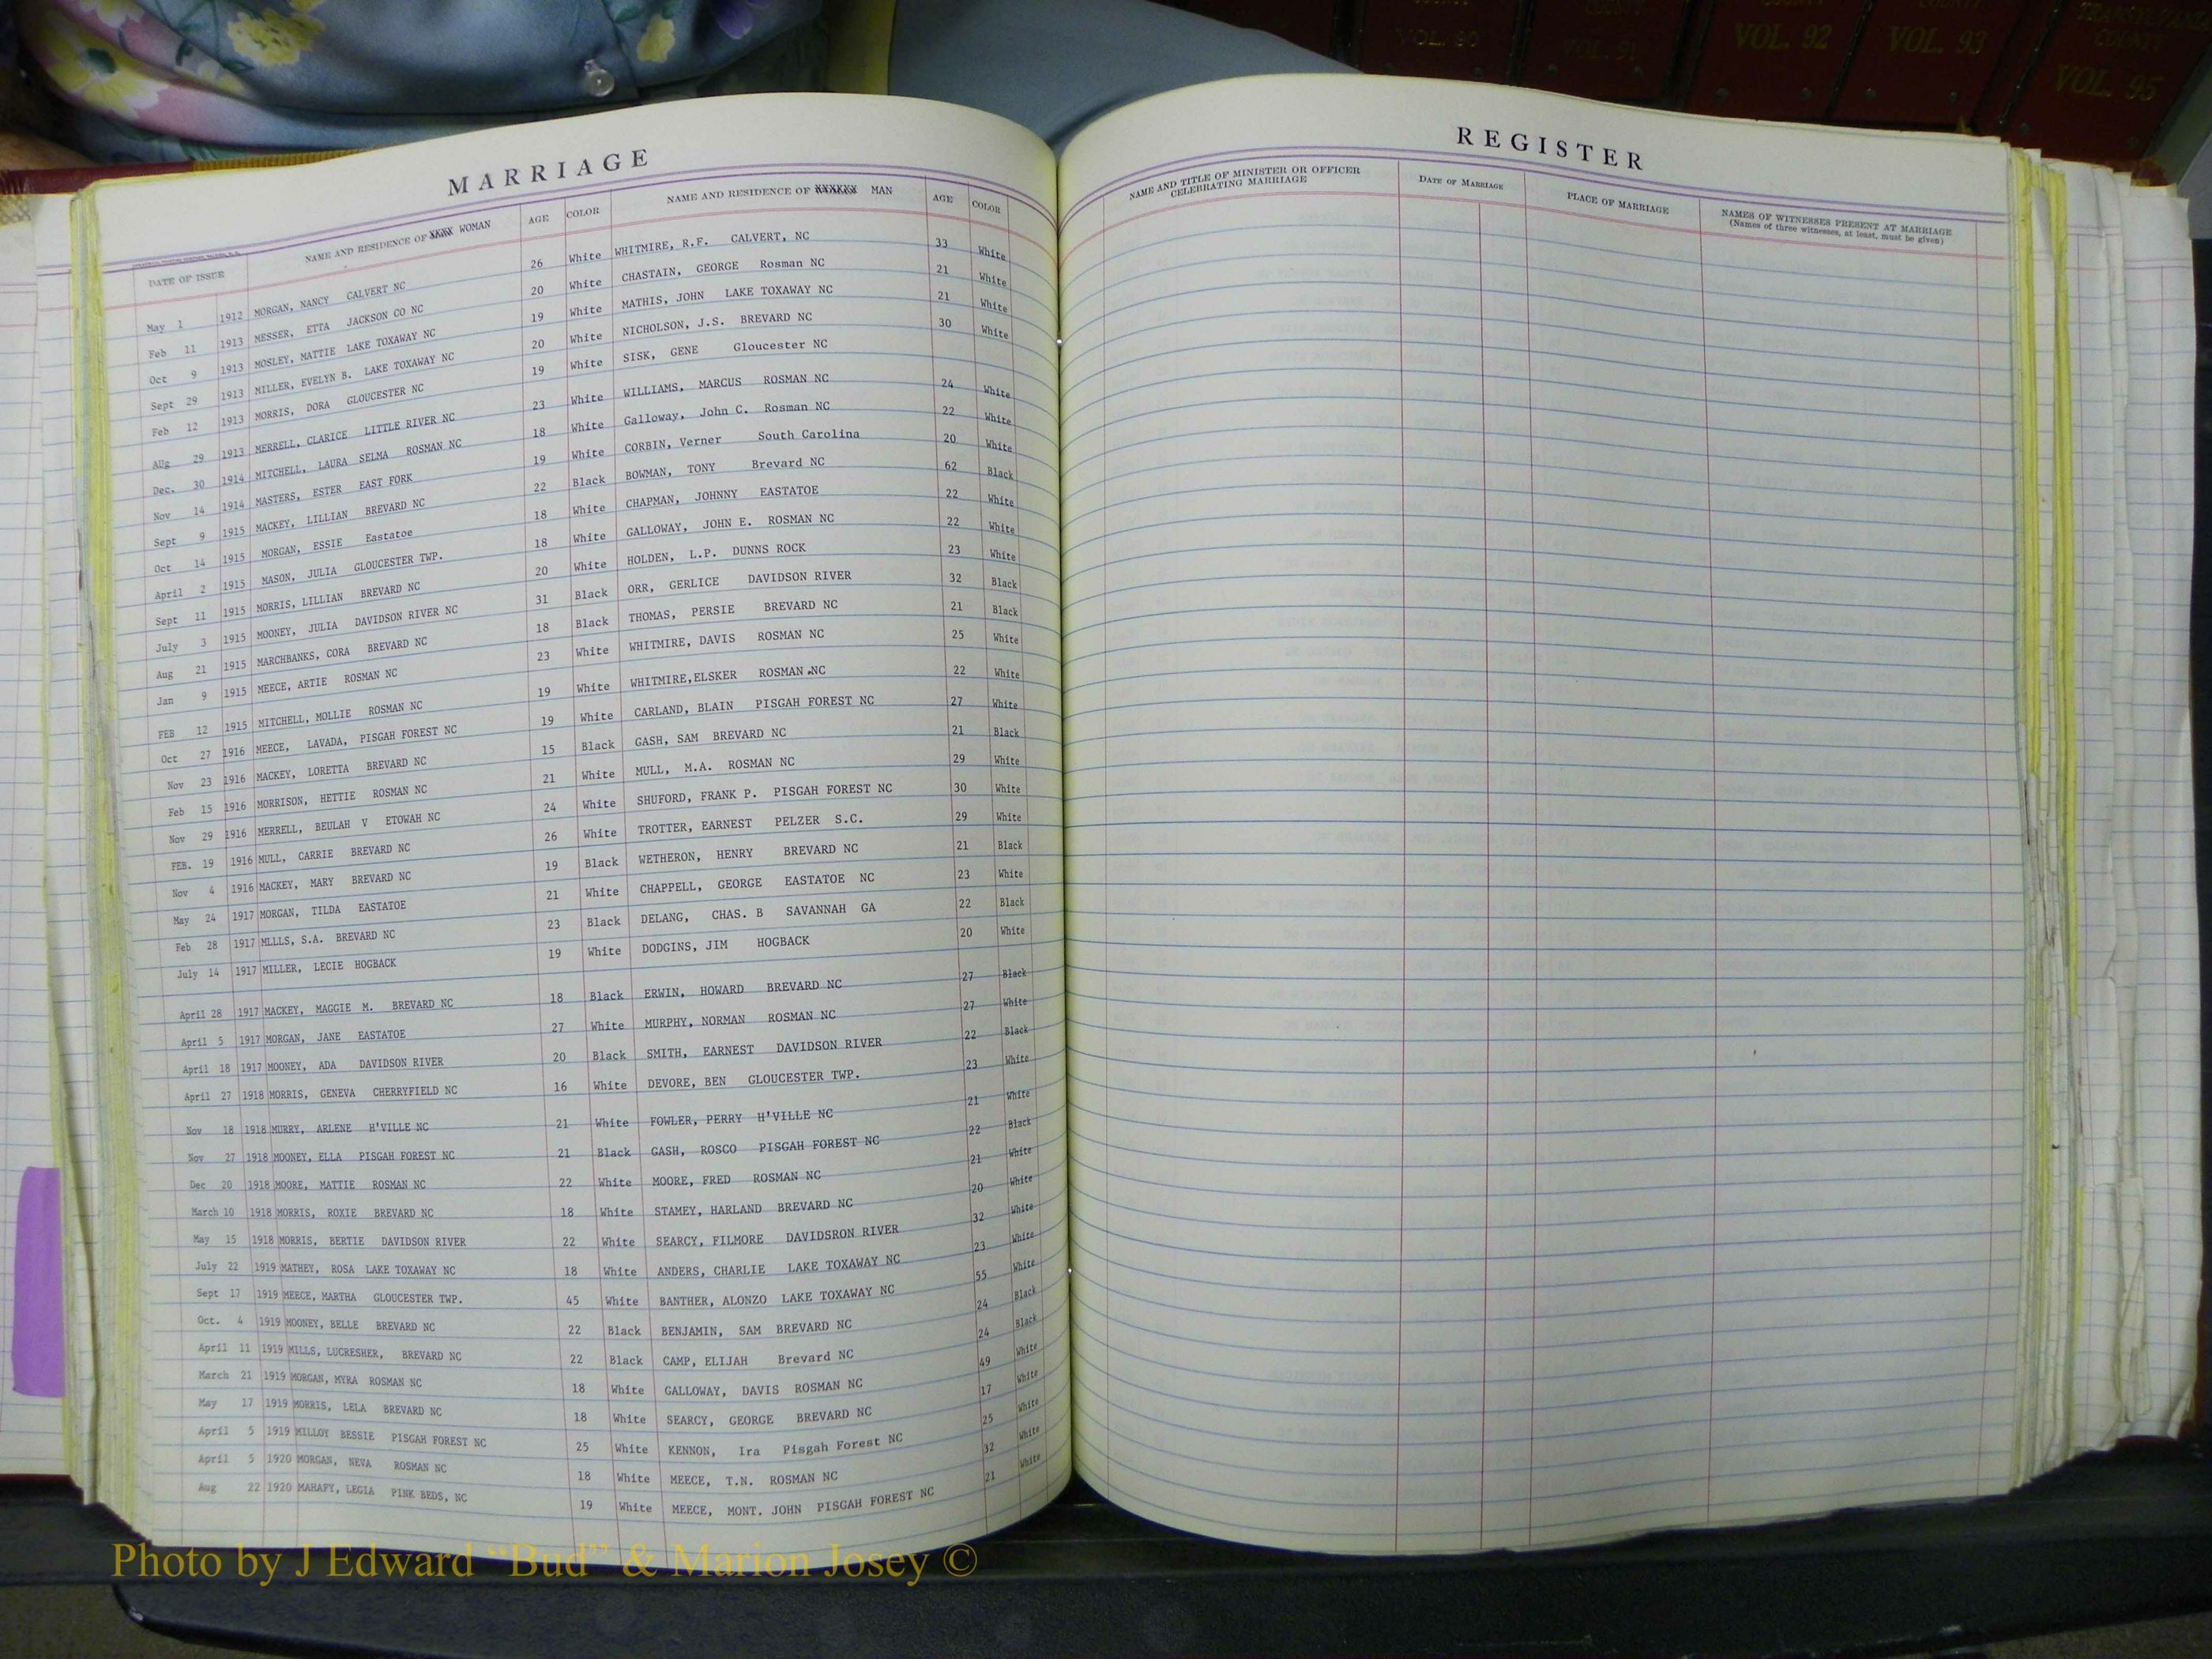 COUNTY
VOL. 90
COUNTY
VOL. 91
COUNTY
VOL. 92
COUNTY
VOL. 93
TRANSYLVANIA
COUNTY
VOL. 95
MARRIAGE
DATE OF ISSUE NAME AND RESIDENCE OF XXXX WOMAN AGE COLOR NAME AND RESIDENCE OF XXXXXX MAN AGE COLOR
May 1 1912 MORGAN, NANCY CALVERT NC 26 White WHITMIRE, R.F. CALVERT, NC 33 White
Feb 11 1913 MESSER, ETTA JACKSON CO NC 20 White CHASTAIN, GEORGE Rosman NC 21 White
Oct 9 1913 MOSLEY, MATTIE LAKE TOXAWAY NC 19 White MATHIS, JOHN LAKE TOXAWAY NC 21 White
Sept 29 1913 MILLER, EVELYN B. LAKE TOXAWAY NC 20 White NICHOLSON, J.S. BREVARD NC 30 White
Feb 12 1913 MORRIS, DORA GLOUCESTER NC 19 White SISK, GENE Gloucester NC
Aug 29 1913 MERRELL, CLARICE LITTLE RIVER NC 23 White WILLIAMS, MARCUS ROSMAN NC 24 White
Dec. 30 1914 MITCHELL, LAURA SELMA ROSMAN NC 18 White Galloway, John C. Rosman NC 22 White
Nov 14 1914 MASTERS, ESTER EAST FORK 19 White CORBIN, Verner South Carolina 20 White
Sept 9 1915 MACKEY, LILLIAN BREVARD NC 22 Black BOWMAN, TONY Brevard NC 62 Black
Oct 14 1915 MORGAN, ESSIE Eastatoe 18 White CHAPMAN, JOHNNY EASTATOE 22 White
April 2 1915 MASON, JULIA GLOUCESTER TWP. 18 White GALLOWAY, JOHN E. ROSMAN NC 22 White
Sept 11 1915 MORRIS, LILLIAN BREVARD NC 20 White HOLDEN, L.P. DUNNS ROCK 23 White
July 3 1915 MOONEY, JULIA DAVIDSON RIVER NC 31 Black ORR, GERLICE DAVIDSON RIVER 32 Black
Aug 21 1915 MARCHBANKS, CORA BREVARD NC 18 Black THOMAS, PERSIE BREVARD NC 21 Black
Jan 9 1915 MEECE, ARTIE ROSMAN NC 23 White WHITMIRE, DAVIS ROSMAN NC 25 White
FEB 12 1915 MITCHELL, MOLLIE ROSMAN NC 19 White WHITMIRE,ELSKER ROSMAN NC 22 White
Oct 27 1916 MEECE, LAVADA, PISGAH FOREST NC 19 White CARLAND, BLAIN PISGAH FOREST NC 27 White
Nov 23 1916 MACKEY, LORETTA BREVARD NC 15 Black GASH, SAM BREVARD NC 21 Black
Feb 15 1916 MORRISON, HETTIE ROSMAN NC 21 White MULL, M.A. ROSMAN NC 29 White
Nov 29 1916 MERRELL, BEULAH V ETOWAH NC 24 White SHUFORD, FRANK P. PISGAH FOREST NC 30 White
FEB. 19 1916 MULL, CARRIE BREVARD NC 26 White TROTTER, EARNEST PELZER S.C. 29 White
Nov 4 1916 MACKEY, MARY BREVARD NC 19 Black WETHERON, HENRY BREVARD NC 21 Black
May 24 1917 MORGAN, TILDA EASTATOE 21 White CHAPPELL, GEORGE EASTATOE NC 23 White
Feb 28 1917 MLLLS, S.A. BREVARD NC 23 Black DELANG, CHAS. B SAVANNAH GA 22 Black
July 14 1917 MILLER, LECIE HOGBACK 19 White DODGINS, JIM HOGBACK 20 White
April 28 1917 MACKEY, MAGGIE M. BREVARD NC 18 Black ERWIN, HOWARD BREVARD NC 27 Black
April 5 1917 MORGAN, JANE EASTATOE 27 White MURPHY, NORMAN ROSMAN NC 27 White
April 18 1917 MOONEY, ADA DAVIDSON RIVER 20 Black SMITH, EARNEST DAVIDSON RIVER 22 Black
April 27 1918 MORRIS, GENEVA CHERRYFIELD NC 16 White DEVORE, BEN GLOUCESTER TWP. 23 White
Nov 18 1918 MURRY, ARLENE H'VILLE NC 21 White FOWLER, PERRY H'VILLE NC 21 White
Nov 27 1918 MOONEY, ELLA PISGAH FOREST NC 21 Black GASH, ROSCO PISGAH FOREST NC 22 Black
Dec 20 1918 MOORE, MATTIE ROSMAN NC 22 White MOORE, FRED ROSMAN NC 21 White
March 10 1918 MORRIS, ROXIE BREVARD NC 18 White STAMEY, HARLAND BREVARD NC 20 White
May 15 1918 MORRIS, BERTIE DAVIDSON RIVER 22 White SEARCY, FILMORE DAVIDSRON RIVER 32 White
July 22 1919 MATHEY, ROSA LAKE TOXAWAY NC 18 White ANDERS, CHARLIE LAKE TOXAWAY NC 23 White
Sept 17 1919 MEECE, MARTHA GLOUCESTER TWP. 45 White BANTHER, ALONZO LAKE TOXAWAY NC 55 White
Oct. 4 1919 MOONEY, BELLE BREVARD NC 22 Black BENJAMIN, SAM BREVARD NC 24 Black
April 11 1919 MILLS, LUCRESHER, BREVARD NC 22 Black CAMP, ELIJAH Brevard NC 24 Black
March 21 1919 MORGAN, MYRA ROSMAN NC 18 White GALLOWAY, DAVIS ROSMAN NC 49 White
May 17 1919 MORRIS, LELA BREVARD NC 18 White SEARCY, GEORGE BREVARD NC 17 White
April 5 1919 MILLOY BESSIE PISGAH FOREST NC 25 White KENNON, Ira Pisgah Forest NC 25 White
April 5 1920 MORGAN, NEVA ROSMAN NC 18 White MEECE, T.N. ROSMAN NC 32 White
Aug 22 1920 MAHAFY, LEGIA PINK BEDS, NC 19 White MEECE, MONT. JOHN PISGAH FOREST NC 21 White
REGISTER
NAME AND TITLE OF MINISTER OR OFFICER CELEBRATING MARRIAGE
DATE OF MARRIAGE
PLACE OF MARRIAGE
NAMES OF WITNESSES PRESENT AT MARRIAGE
(Names of three witnesses, at least, must be given)
Photo by J Edward “Bud” & Marion Josey ©